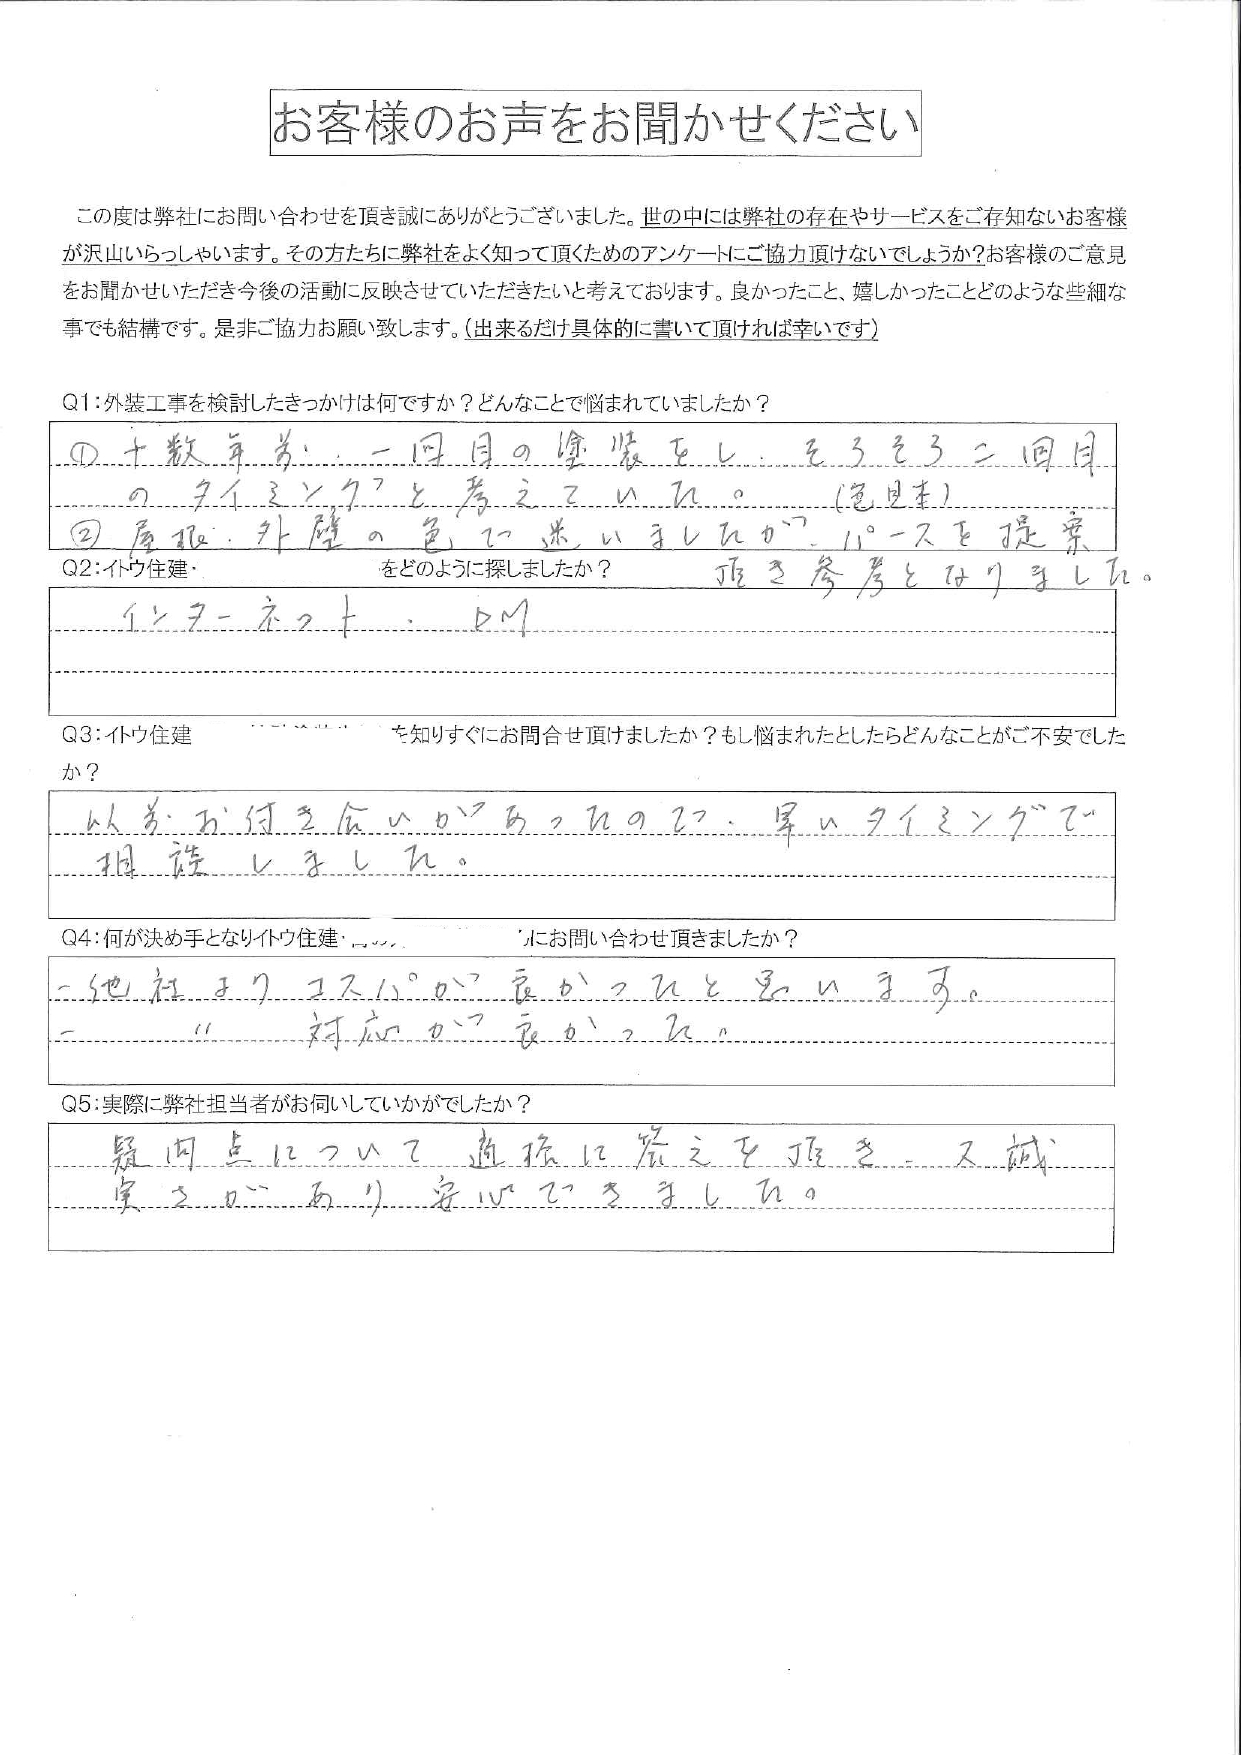 お客様のお声をお聞かせください
この度は弊社にお問い合わせを頂き誠にありがとうございました。世の中には弊社の存在やサービスをご存知ないお客様
が沢山いらっしゃいます。その方たちに弊社をよく知って頂くためのアンケートにご協力頂けないでしょうか?お客様のご意見
をお聞かせいただき今後の活動に反映させていただきたいと考えております。良かったこと、嬉しかったことどのような些細な
事でも結構です。是非ご協力お願い致します。(出来るだけ具体的に書いて頂ければ幸いです)
Q1:外装工事を検討したきっかけは何ですか?どんなことで悩まれていましたか?
① 十数年前、一回目の塗装をし、そろそろ二回目
のタイミングと考えていた。 (色見本)
② 屋根、外壁の色で迷いましたが、パースを提案
頂き参考となりました。
Q2:イトウ住建・ をどのように探しましたか?
インターネット、DM
Q3:イトウ住建 を知りすぐにお問合せ頂けましたか?もし悩まれたとしたらどんなことがご不安でした
か?
以前お付き合いがあったので、早いタイミングで
相談しました。
Q4:何が決め手となりイトウ住建・ にお問い合わせ頂きましたか?
-他社よりコスパが良かったと思います。
- 〃 対応が良かった。
Q5:実際に弊社担当者がお伺いしていかがでしたか?
疑問点について適格に答えを頂き、又誠
実さがあり安心できました。